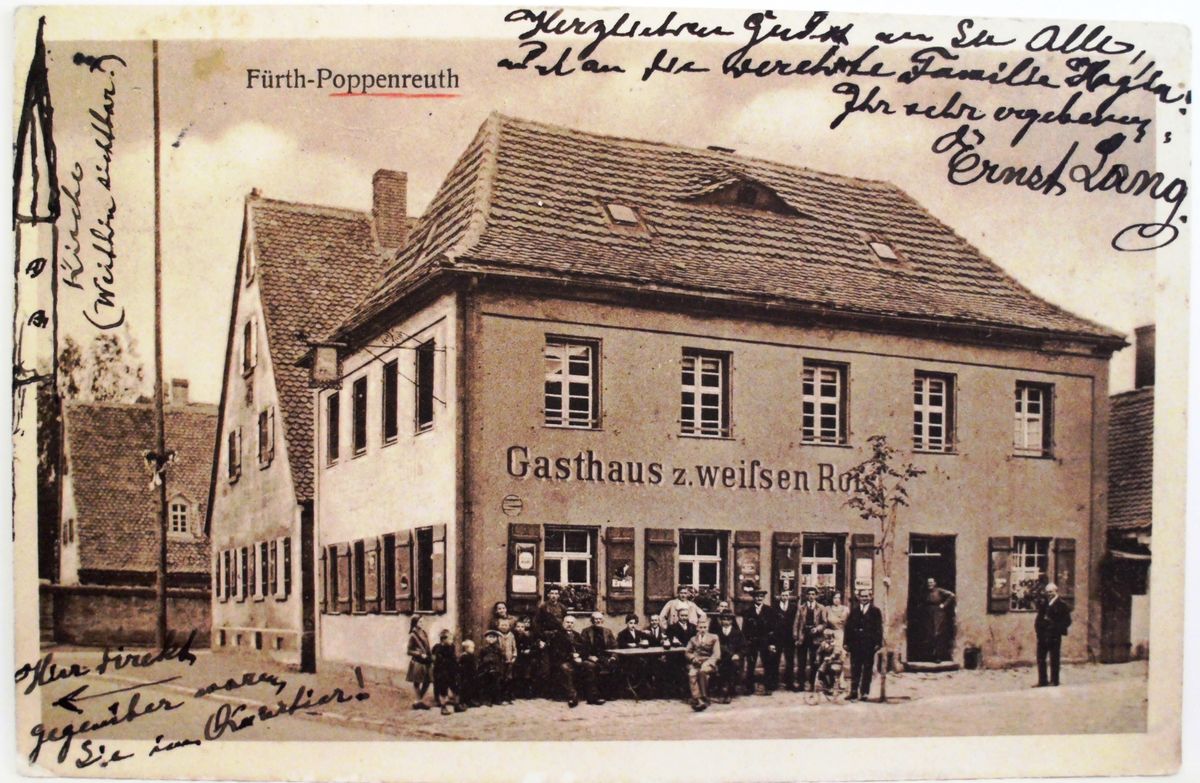 Herzlichen Gruß an Sie Alle,
und an die verehrte Familie
Ihr sehr ergebener
Ernst Lang.
Fürth-Poppenreuth
Kirche
(Weithin sichtbar!)
Gasthaus z. weiſsen Roß
Hier direkt
gegenüber waren
Sie im Quartier!